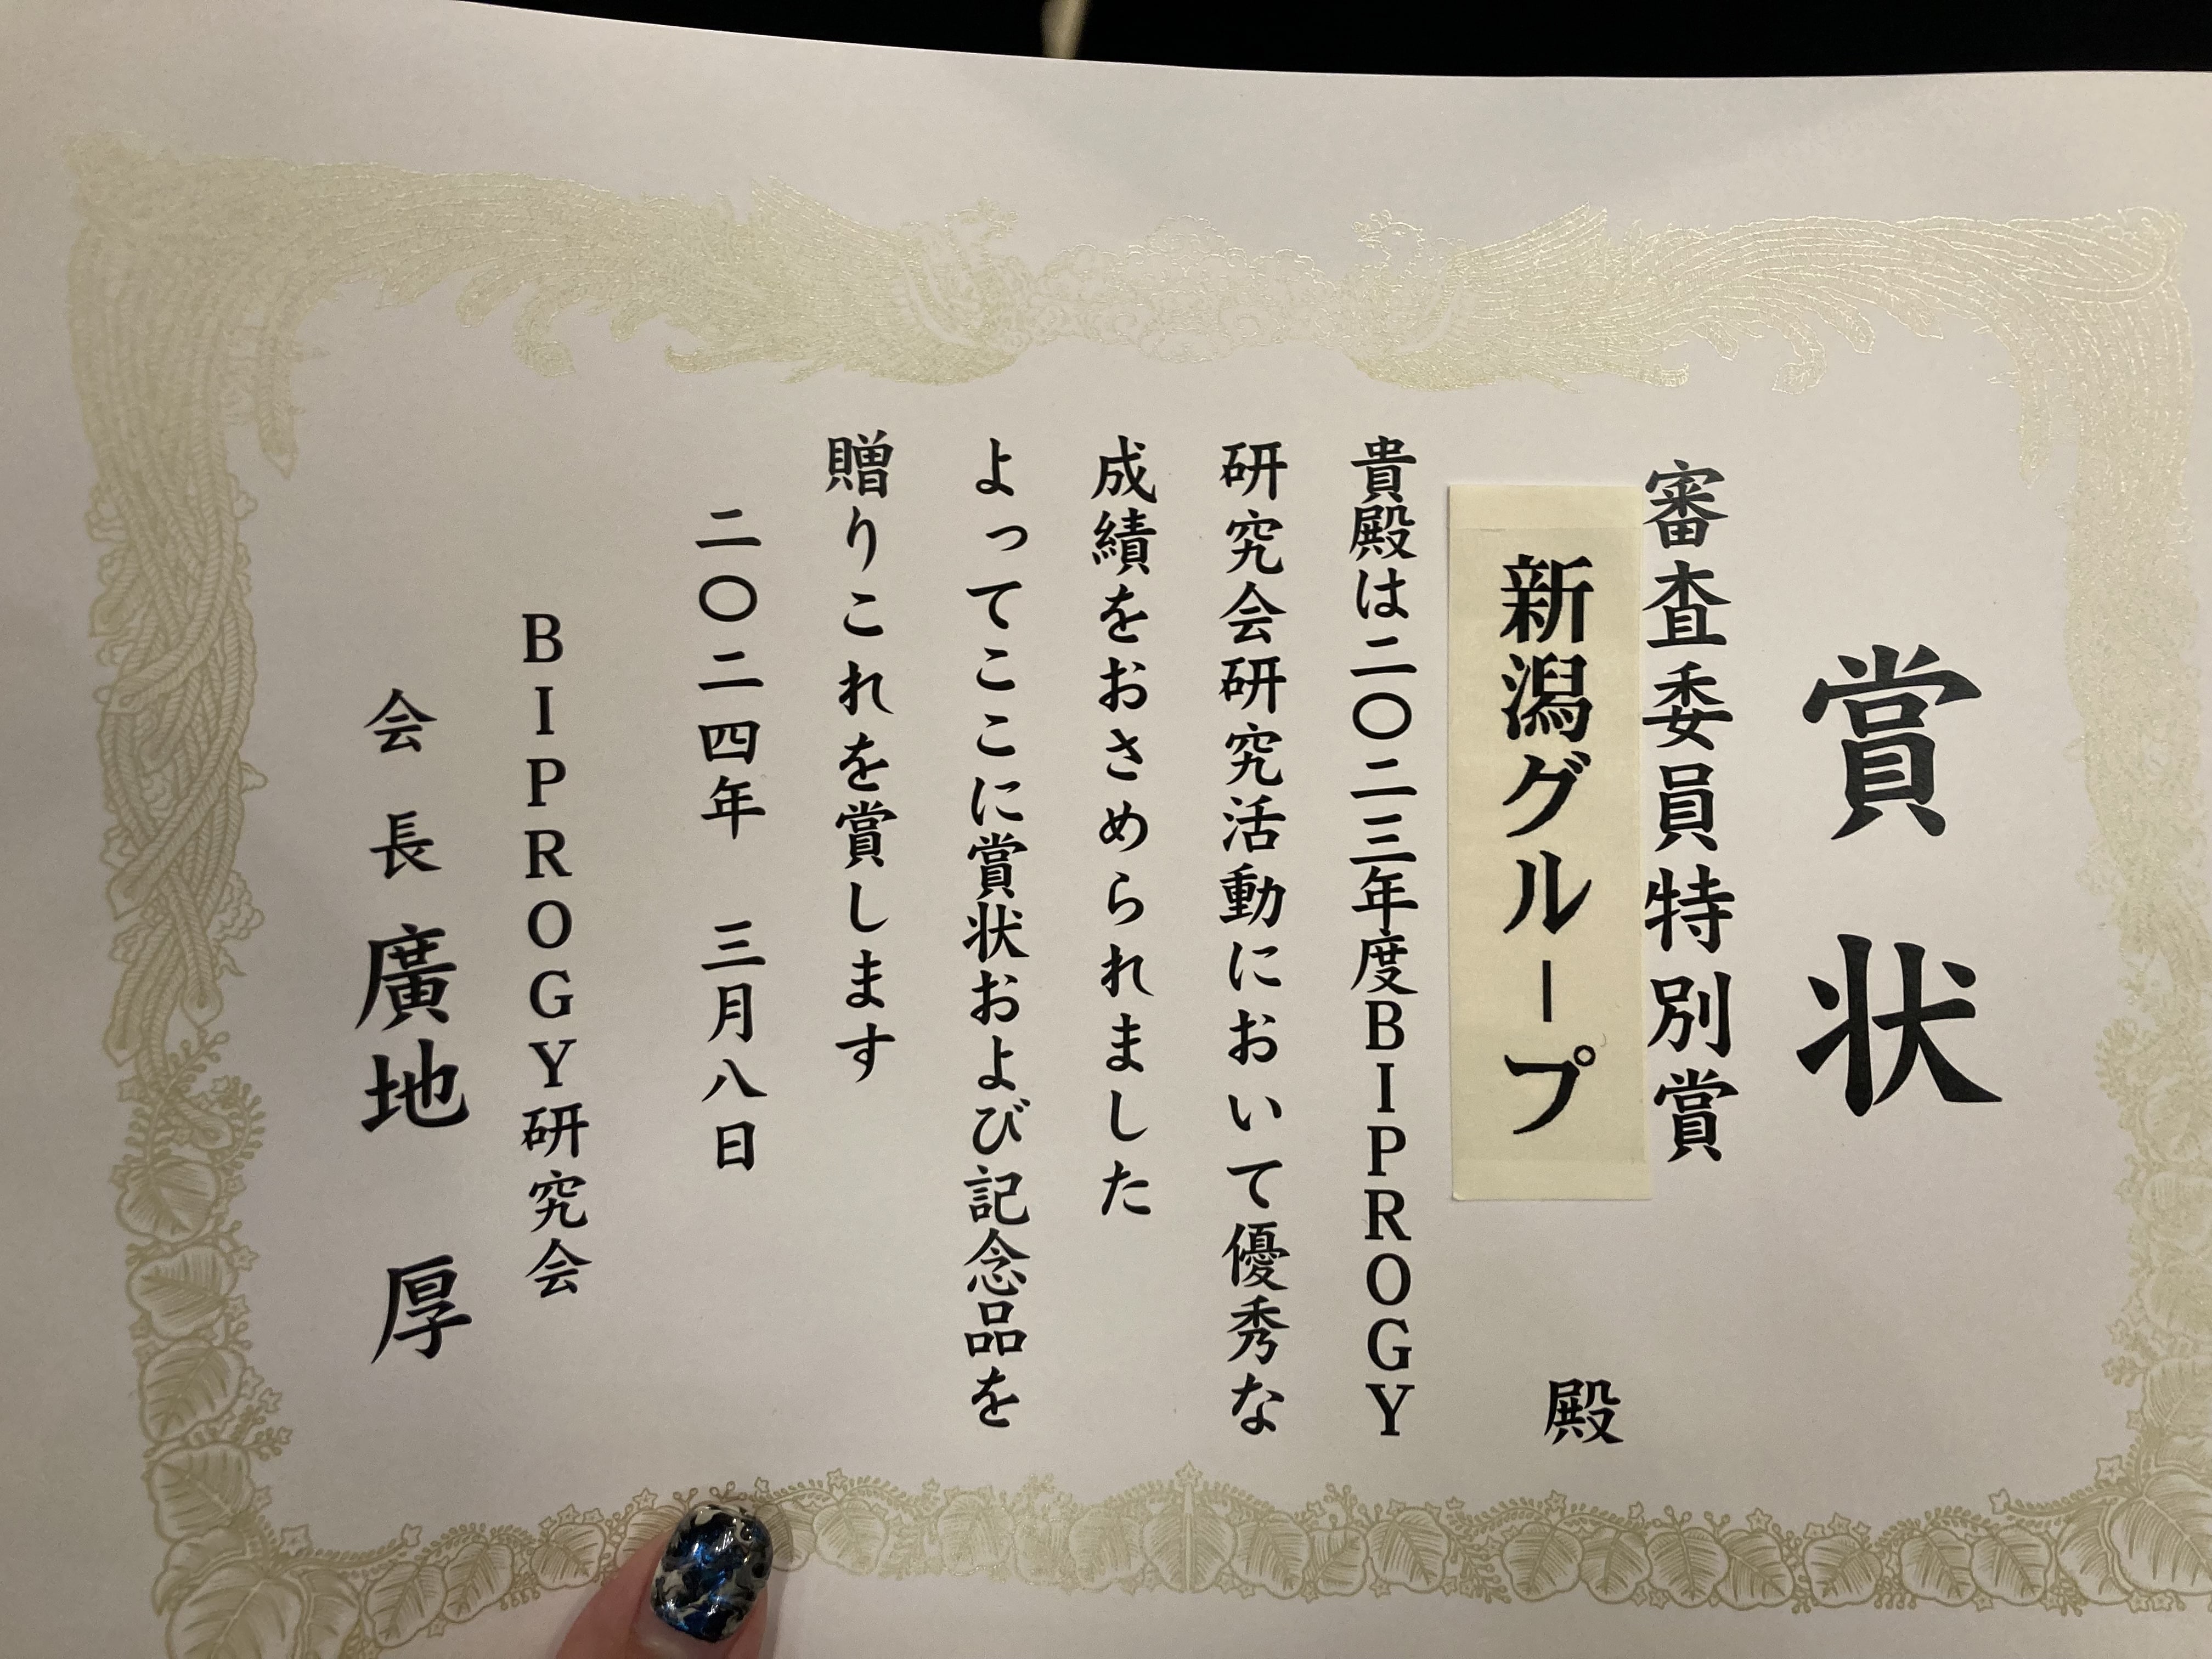 賞状
審査委員特別賞
新潟グループ 殿
貴殿は二〇二三年度BIPROGY
研究会研究活動において優秀な
成績をおさめられました
よってここに賞状および記念品を
贈りこれを賞します
二〇二四年 三月八日
BIPROGY研究会
会長 廣地 厚